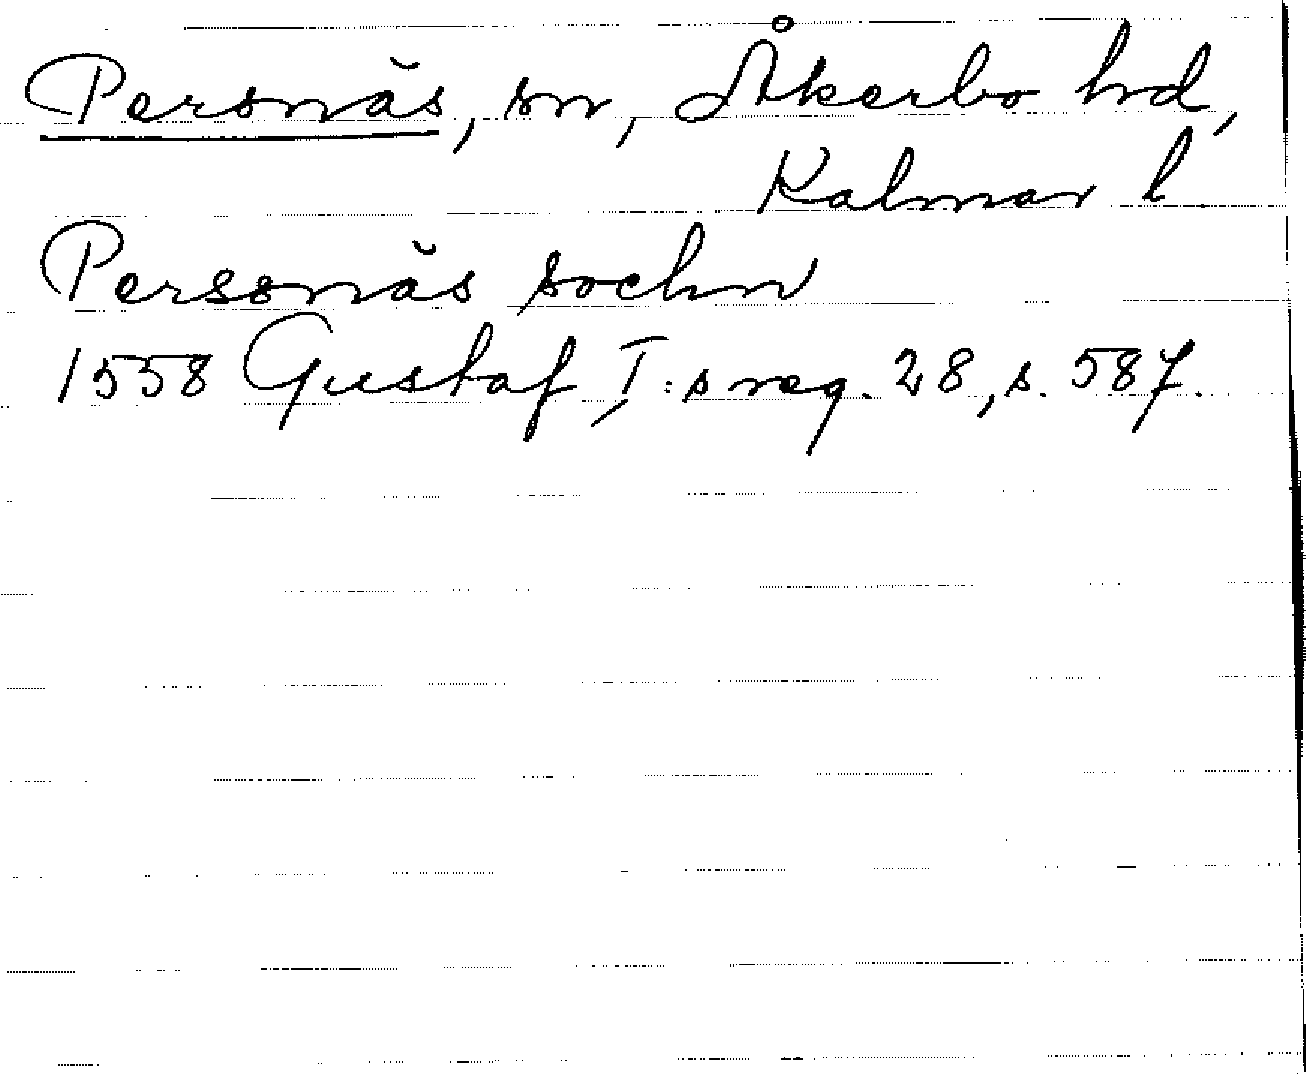 Persnäs, sn, Åkerbo hd,
Kalmar l
Perssnäs sochn
1558 Gustaf I:s reg. 28, s. 587.